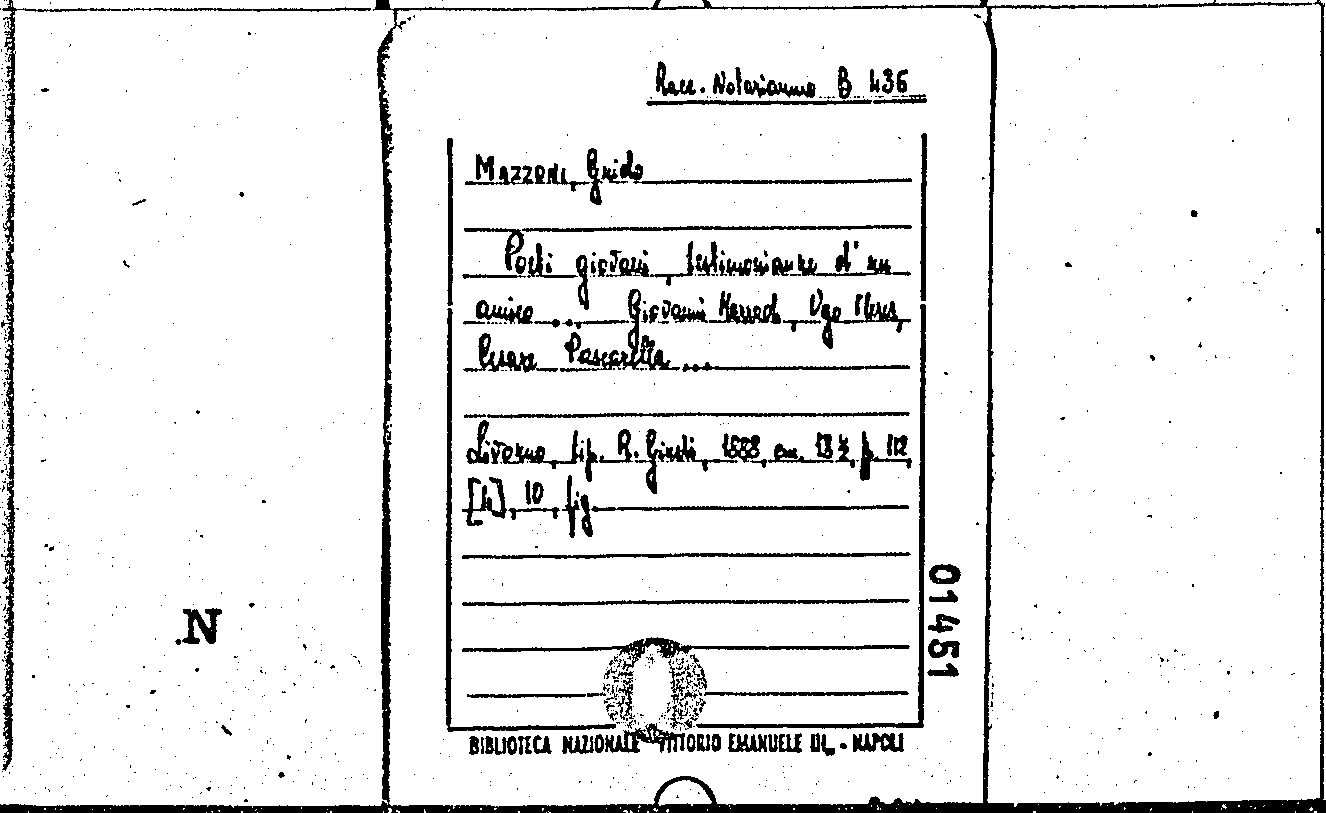 Racc. Notarianno B 436
MAZZONI, Guido
Poeti giovani, testimonianze d'un
amico ... Giovanni Marradi, Ugo Fleres,
Cesare Pascarella ...
Livorno, tip. R. Giusti, 1888, cm. 18½, p. 112,
[4], 10, fig
01451
N
BIBLIOTECA NAZIONALE VITTORIO EMANUELE III - NAPOLI